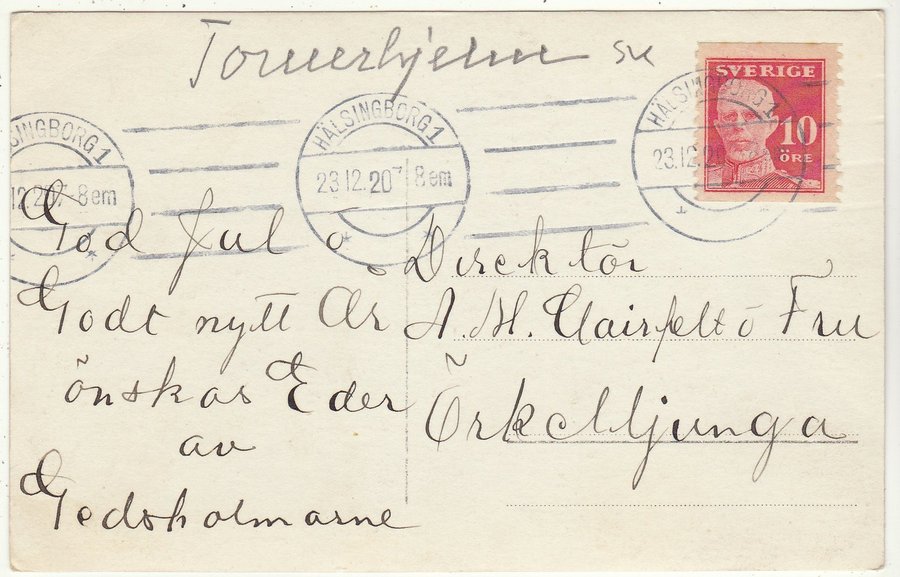 Tornerhjelm
SINGBORG 1
12.20 7 8 em
HÄLSINGBORG 1
23.12.20 7 8 em
HÄLSINGBORG 1
23.12.20
SVERIGE
10
ÖRE
God Jul o
Godt nytt År
önskas Eder
av
Gedsholmarne
Direktör
A. M. o Fru
Örkelljunga